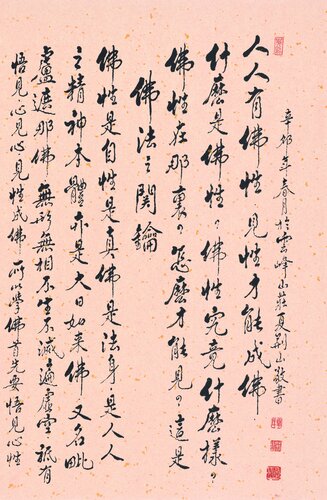 人人有佛性見性才能成佛
什麼是佛性。佛性究竟什麼樣。
佛性在那裏。怎麼才能見。這是
佛法之関鑰
佛性是自性是真佛是法身是人人
之精神本體亦是大日如来佛又名毗
盧遮那佛無形無相不生不滅遍虚空祇有
悟見心見心見性成佛所以學佛首先要悟見心性
辛卯年春月於雲峰山莊夏荆山敬書